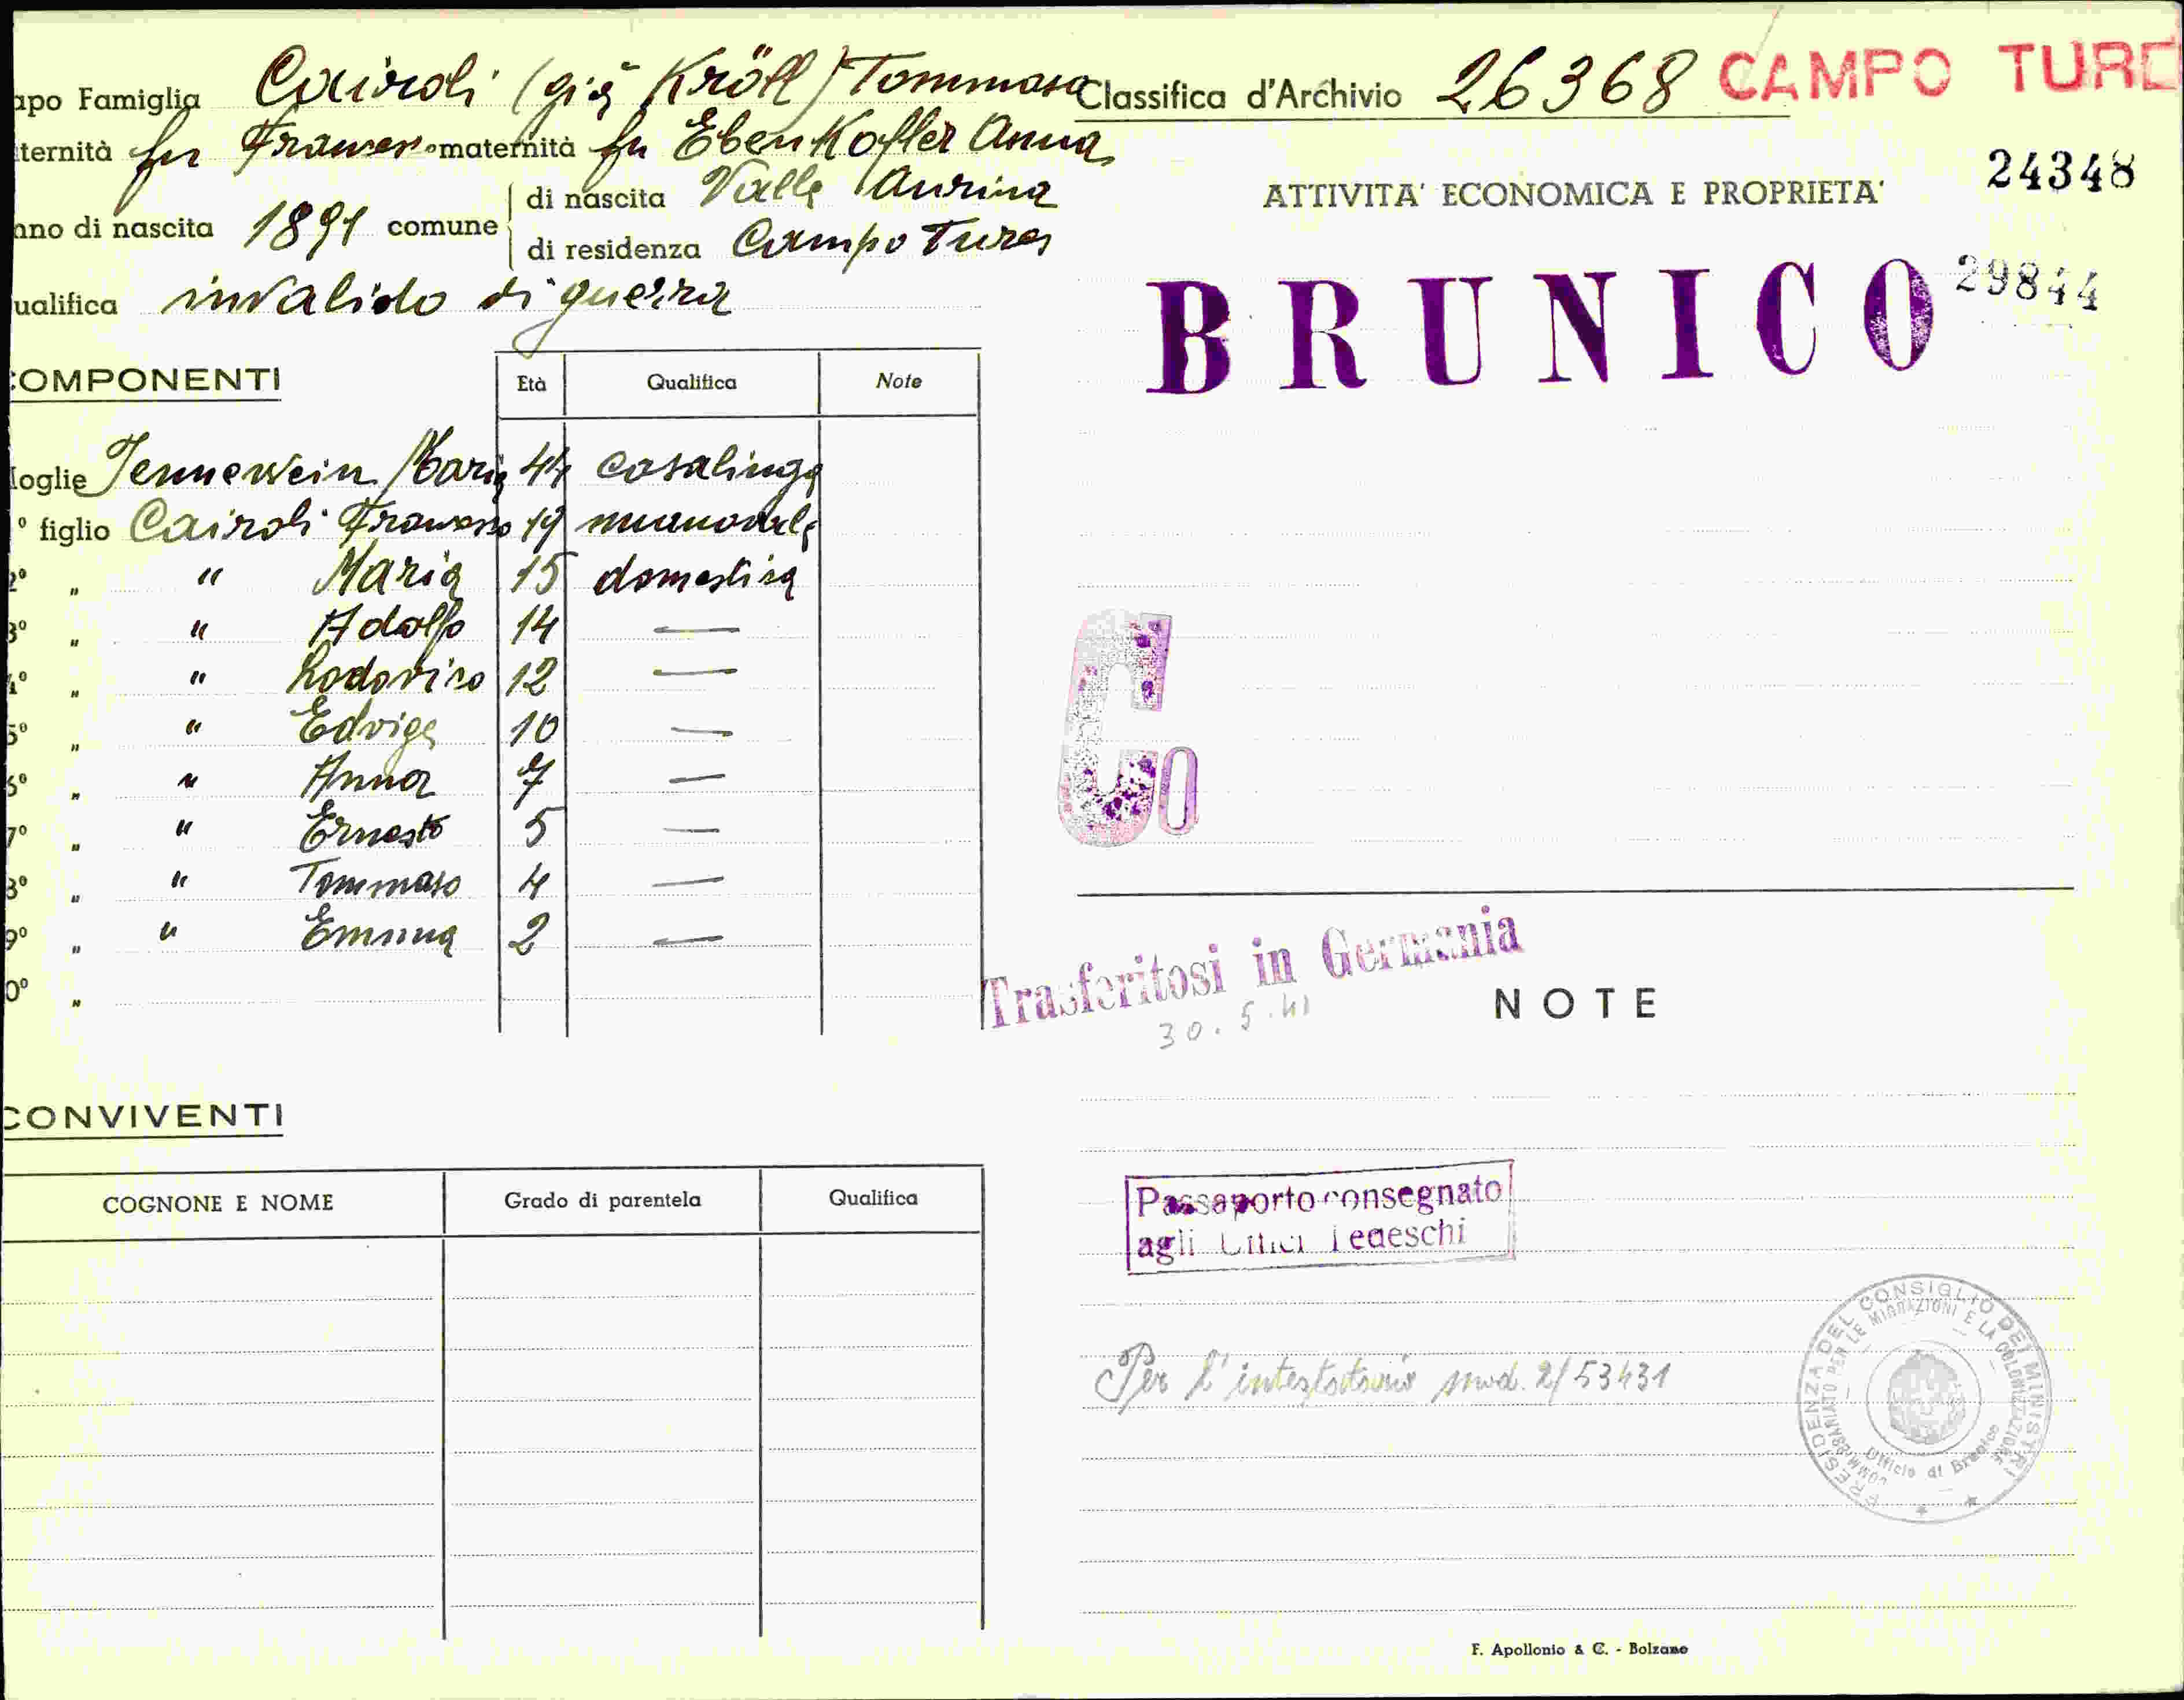 apo Famiglia Cairoli (già Kröll) Tommaso
ternità fu Francesco maternità fu Ebenkofler Anna
nno di nascita 1891 comune di nascita Valle Aurina
di residenza Campo Tures
ualifica invalido di guerra
OMPONENTI Età Qualifica Note
oglie Jennewein Maria 44 casalinga
° figlio Cairoli Francesco 19 manovale
2° " " Maria 15 domestica
3° " " Adolfo 14 —
4° " " Lodovico 12 —
5° " " Edvige 10 —
6° " " Anna 7 —
7° " " Ernesto 5 —
8° " " Tommaso 4 —
9° " " Emma 2 —
0° "
CONVIVENTI
COGNONE E NOME Grado di parentela Qualifica
Classifica d'Archivio 26368 CAMPO TURE
24348
ATTIVITA' ECONOMICA E PROPRIETA'
29844
BRUNICO
Co
Trasferitosi in Germania
30.5.41
NOTE
Passaporto consegnato
agli Uffici Tedeschi
Per l'intestatario mod. 2/53431
PRESIDENZA DEL CONSIGLIO DEI MINISTRI
COMMISSARIATO PER LE MIGRAZIONI E LA COLONIZZAZIONE
Ufficio di Brunico
F. Apollonio & C. - Bolzano